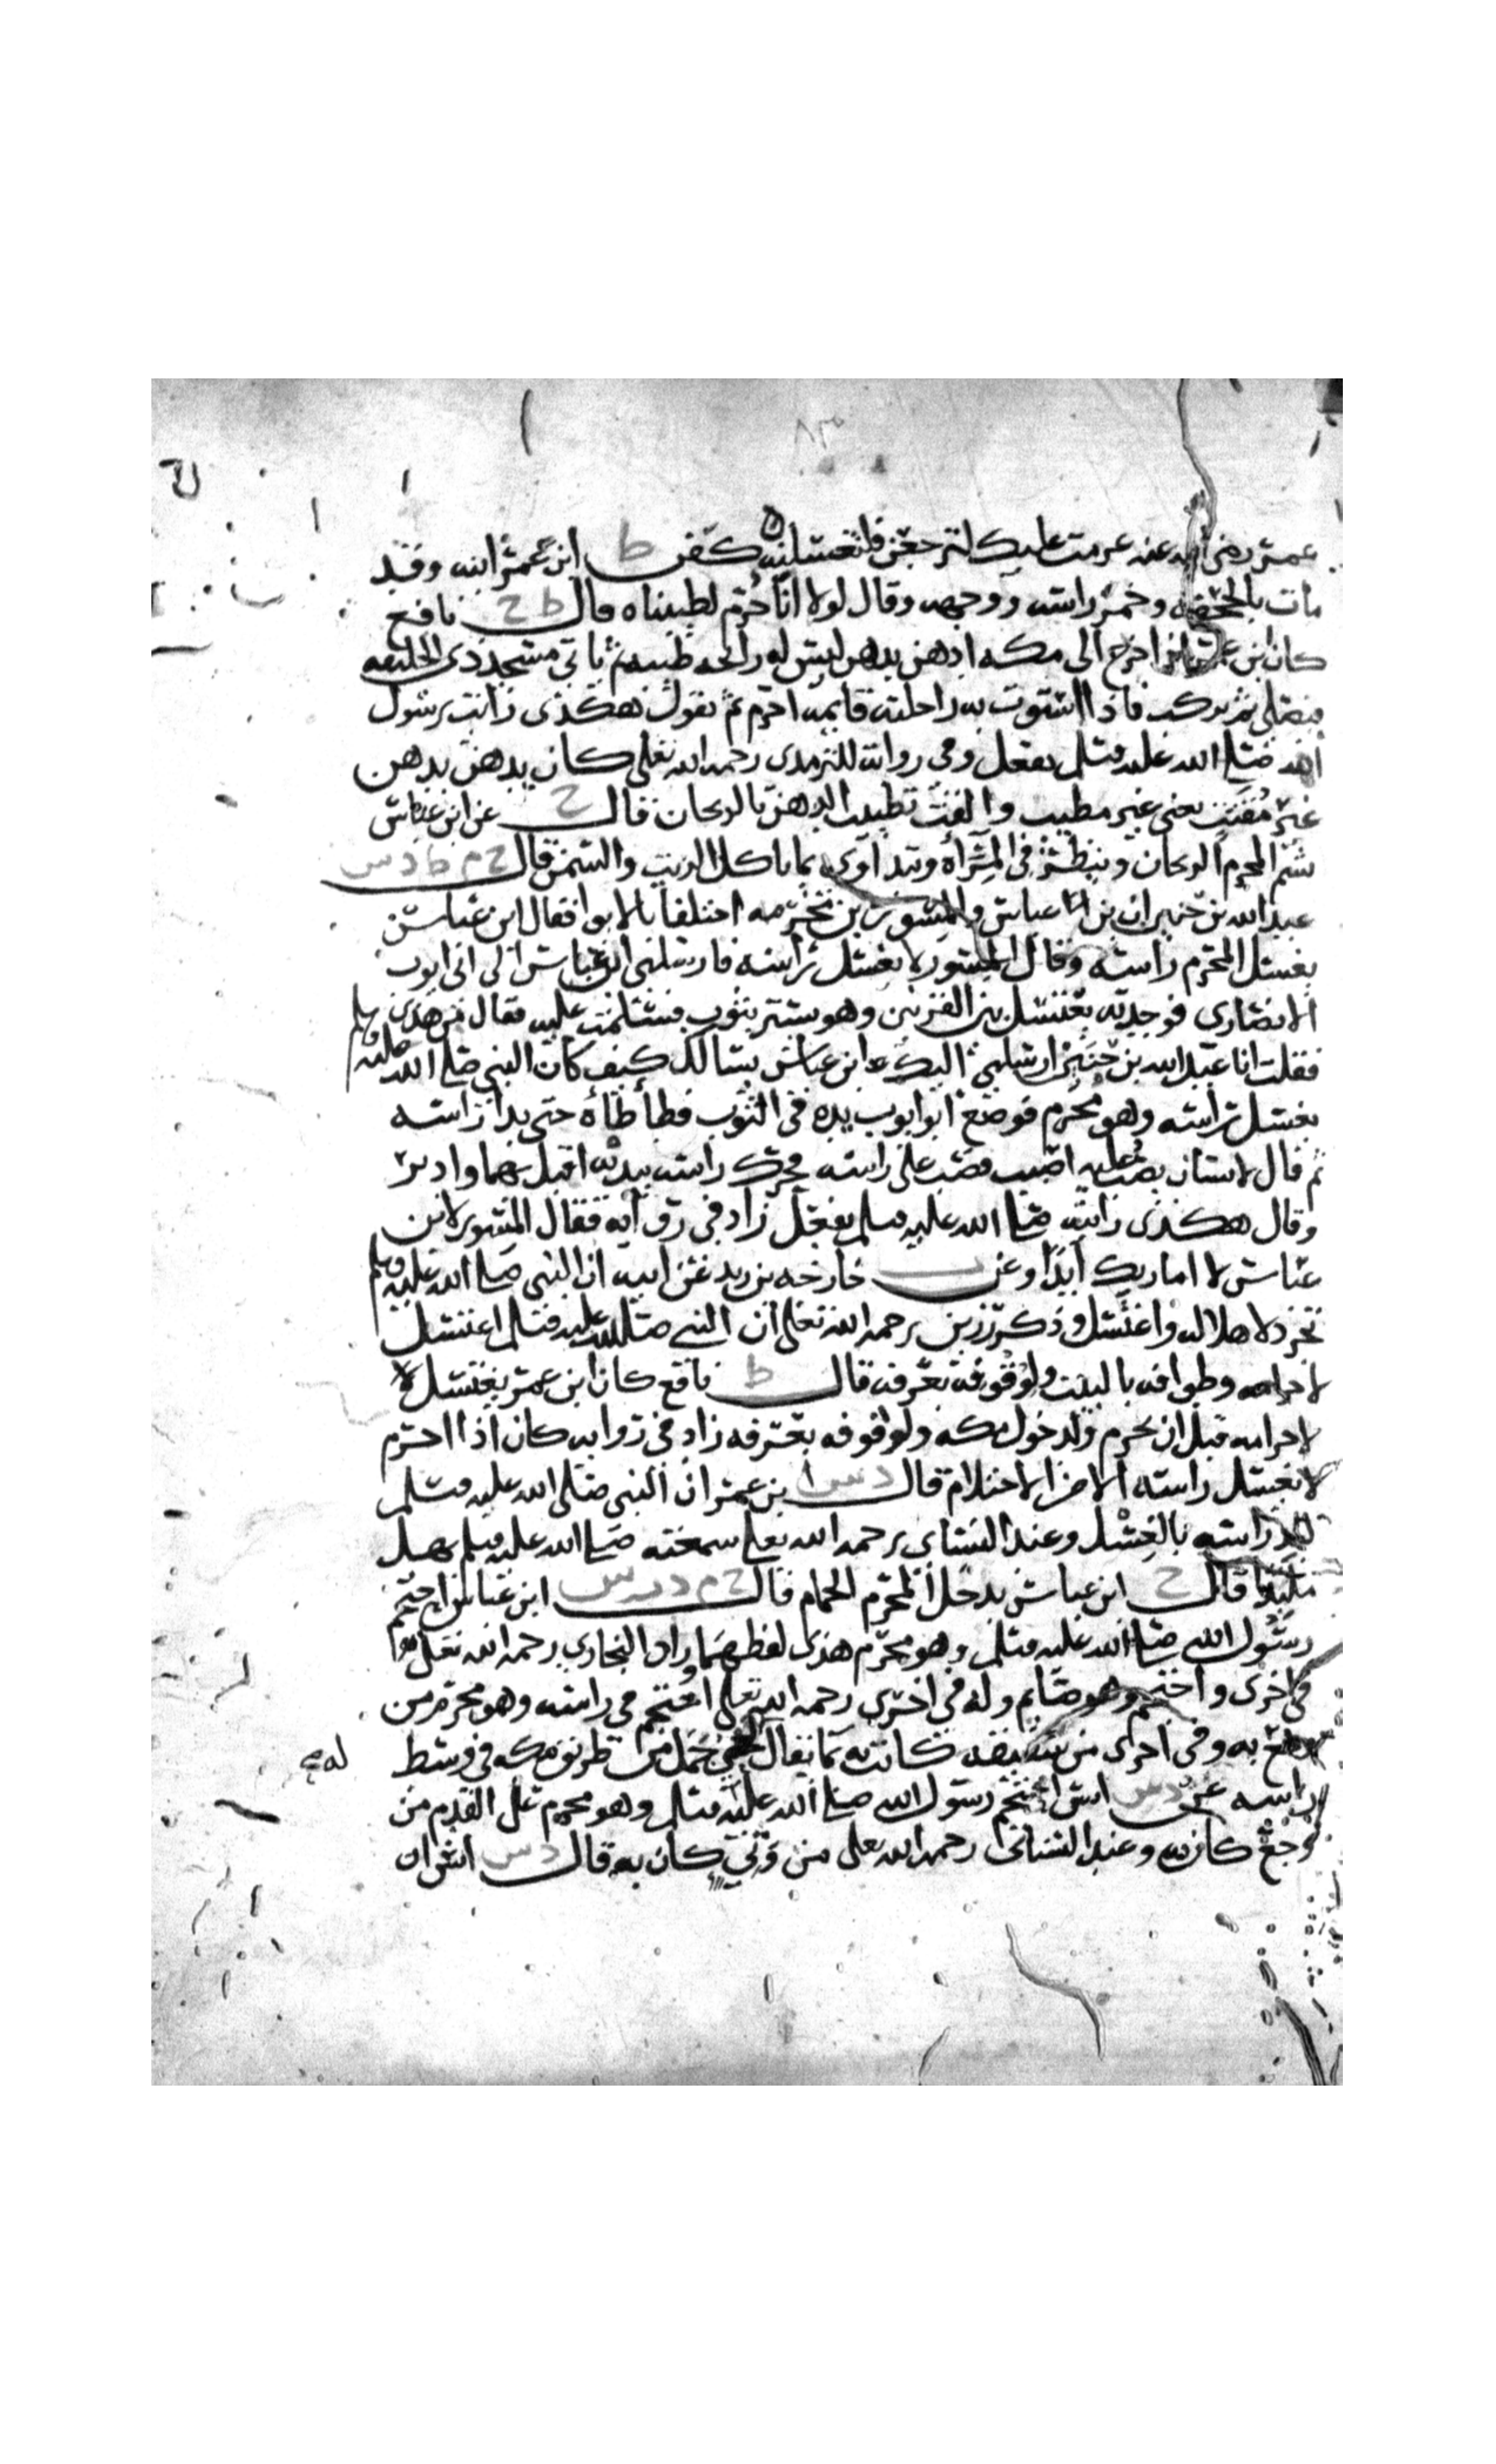 عمر رضي الله عنه عزمت عليك لترجعن فلتغسلنه كفن ط ابن عمر ابنه وقد
مات بالجحفه وخمر راسه ووجهه وقال لولا انا حرم لطيبناه قال ط خ نافع
كان ابن عمر اذا خرج الى مكه ادهن بدهن ليس له رائحه طيبه ثم ياتي مسجد ذي الحليفه
فيصلي ثم يركب فاذا استوت به راحلته قايمه احرم ثم يقول هكذى رايت رسول
الله صلى الله عليه وسلم يفعل وفي روايه للترمذى رحمه الله تعلى كان يدهن بدهن
غير مقتت يعنى غير مطيب والقت تطييب الدهن بالريحان قال خ عن ابن عباس
يشم المحرم الريحان وينظر في المرأه ويتداوى بما ياكل الزيت والسمن قال خ م ط د س
عبد الله بن حنين ان بن عباس والمسور بن مخرمه اختلفا بالابوا فقال ابن عباس
يغسل المحرم راسه وقال المسور لا يغسل راسه فارسلني ابن عباس الى ابى ايوب
الانصاري فوجدته يغتسل بين القرنين وهو يستتر بثوب فسلمت عليه فقال من هذى
فقلت انا عبد الله بن حنين ارسلني اليك ابن عباس يسالك كيف كان النبي صلى الله عليه وسلم
يغسل راسه وهو محرم فوضع ابو ايوب يده في الثوب فطأطأه حتى بدا راسه
ثم قال لانسان يصب عليه اصبب فصب على راسه ثم حرك راسه بيديه اقبل بهما وادبر
وقال هكذى رايته صلى الله عليه وسلم يفعل زاد في روايه فقال المسور لابن
عباس لا اماريك ابدا وعن ت خارجه بن زيد عن ابيه ان النبي صلى الله عليه وسلم
تجرد لاهلاله واغتسل وذكر رزين رحمه الله تعلى ان النبي صلى الله عليه وسلم اغتسل
لاحرامه وطوافه بالبيت ولوقوفه بعرفه قال ط نافع كان ابن عمر يغتسل
لاحرامه قبل ان يحرم ولدخول مكه ولوقوفه بعرفه زاد في روايه كان اذا احرم
لا يغسل راسه الا من الاحتلام قال د س ا بن عمر ان النبي صلى الله عليه وسلم
لبد راسه بالغسل وعند النساي رحمه الله تعلى سمعته صلى الله عليه وسلم يهل
ملبدا قال خ ابن عباس يدخل المحرم الحمام قال خ م د ت س ابن عباس احتجم
رسول الله صلى الله عليه وسلم وهو محرم هذى لفظهما وزاد البخاري رحمه الله تعلى
في اخرى واحتجم وهو صايم وله في اخرى رحمه الله تعلى احتجم في راسه وهو محرم من
وجع به وفي اخرى من شقيقه كانت به بما يقال له لحي جمل من طريق مكه في وسط
راسه عن د س انس احتجم رسول الله صلى الله عليه وسلم وهو محرم على ظهر القدم من
وجع كان به وعند النسائى رحمه الله تعلى من وثي كان به قال د س انس ان